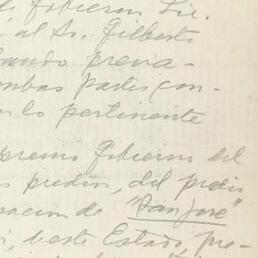 de Gobierno, Lic.
al Sr. Gilberto
previa-
ambas partes con-
lo pertinente
Supremo Gobierno del
predios, del predio
de "San José"
este Estado, pre-